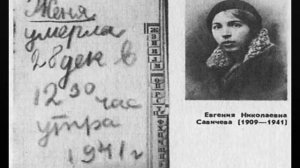 Женя
умерла
28 дек в
12 30 час
утра
1941 г
Евгения Николаевна
Савичева (1909—1941)